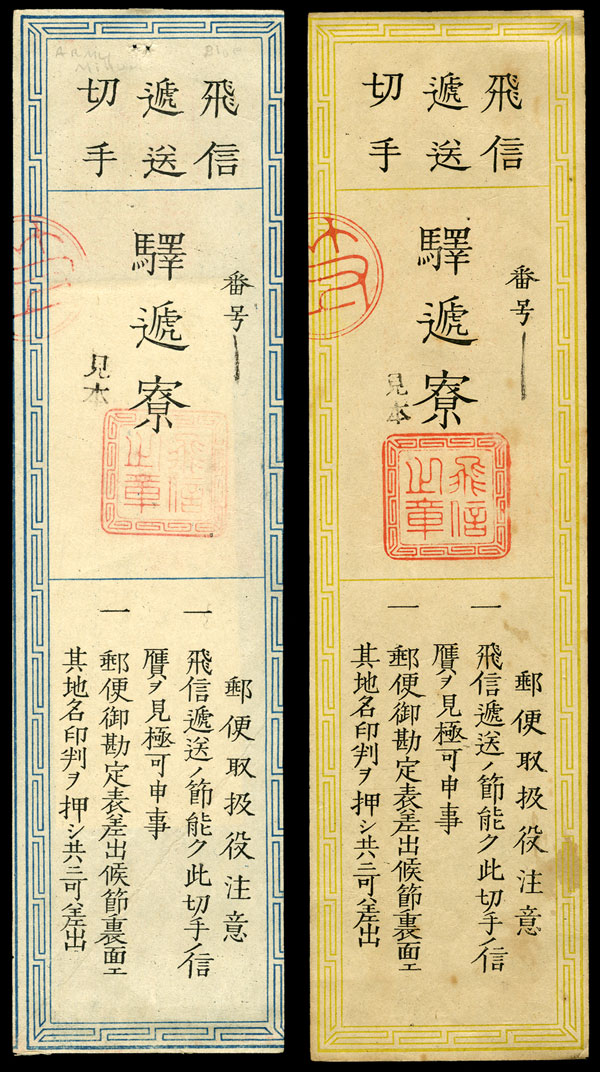 飛信
遞送
切手
番号
驛遞寮
見本
飛信
之章
郵便取扱役注意
一 飛信遞送ノ節能ク此切手ノ信
贋ヲ見極可申事
一 郵便御勘定表差出候節裏面エ
其地名印判ヲ押シ共ニ可差出
飛信
遞送
切手
番号
驛遞寮
見本
飛信
之章
郵便取扱役注意
一 飛信遞送ノ節能ク此切手ノ信
贋ヲ見極可申事
一 郵便御勘定表差出候節裏面エ
其地名印判ヲ押シ共ニ可差出